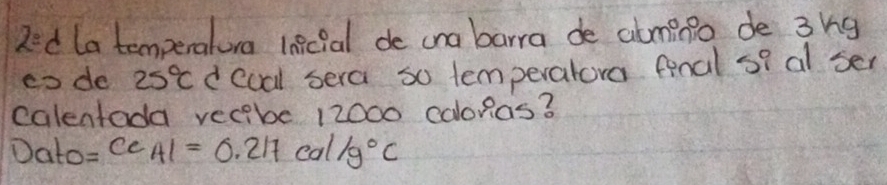 2=d La temperatura Inicial de una barra de aluminio de 3 kg
es de 25°C d Cual sera so temperatura final si al ser
calentada recibe 12000 calorias?
Dato= Ce Al = 0.217 cal/g°C